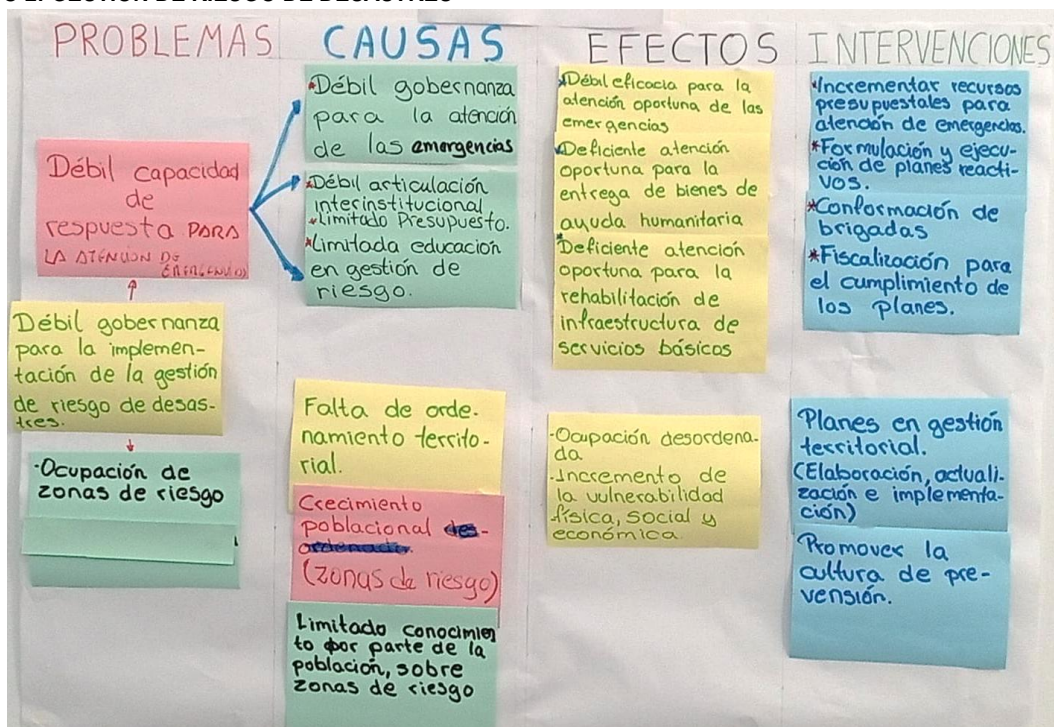 PROBLEMAS
CAUSAS
EFECTOS
INTERVENCIONES
Débil capacidad
de
respuesta PARA
LA ATENCIÓN DE
EMERGENCIAS
Débil gobernanza
para la implemen-
tación de la gestión
de riesgo de desas-
tres.
-Ocupación de
zonas de riesgo
*Débil gobernanza
para la atención
de las emergencias
*Débil articulación
interinstitucional
*Limitado Presupuesto.
*Limitada educación
en gestión de
riesgo.
Falta de orde-
namiento territo-
rial.
Crecimiento
poblacional des-
ordenado
(zonas de riesgo)
Limitado conocimien
to por parte de la
población, sobre
zonas de riesgo
*Débil eficacia para la
atención oportuna de las
emergencias
*Deficiente atención
oportuna para la
entrega de bienes de
ayuda humanitaria
*Deficiente atención
oportuna para la
rehabilitación de
infraestructura de
servicios básicos
-Ocupación desordena-
da
-Incremento de
la vulnerabilidad
física, social y
económica.
*Incrementar recursos
presupuestales para
atención de emergencias.
*Formulación y ejecu-
ción de planes reacti-
vos.
*Conformación de
brigadas
*Fiscalización para
el cumplimiento de
los planes.
Planes en gestión
territorial.
(Elaboración, actuali-
zación e implementa-
ción)
Promover la
cultura de pre-
vensión.